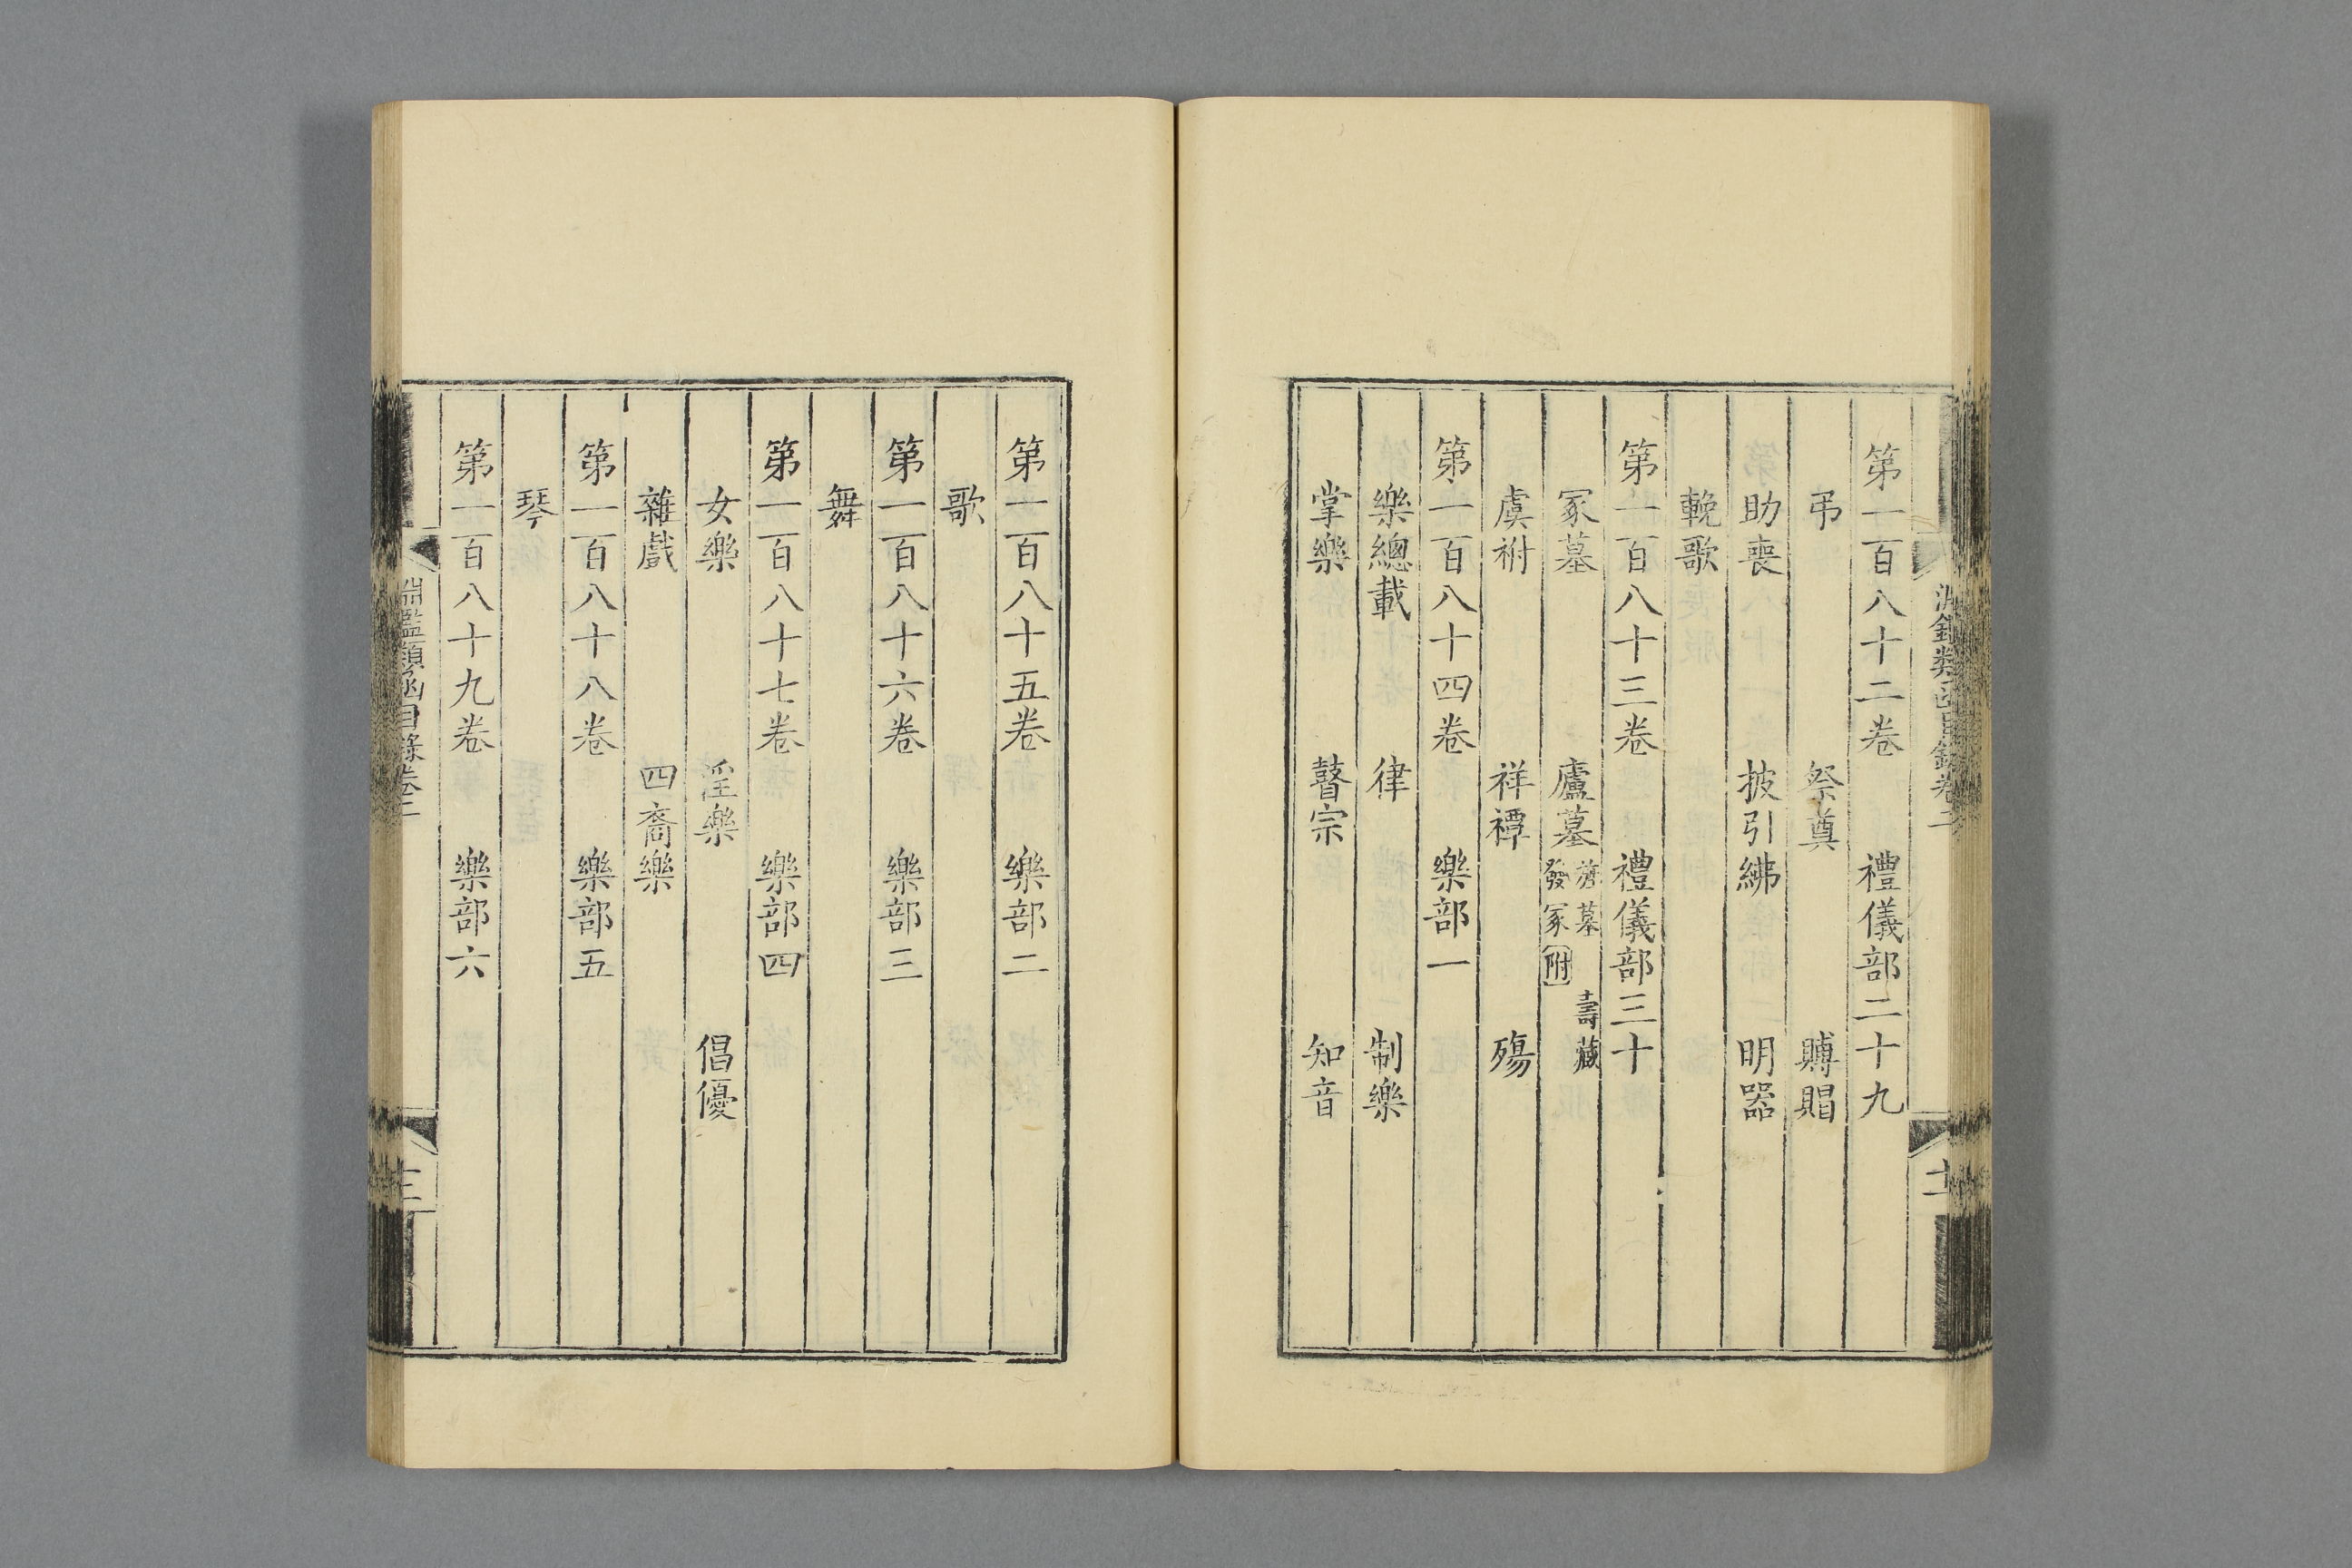 第一百八十二卷 禮儀部二十九
弔 祭奠 賻賵
助喪 披引紼 明器
輓歌
第一百八十三卷 禮儀部三十
冢墓 廬墓 護墓 壽藏 發冢附
虞祔 祥禫 殤
第一百八十四卷 樂部一
樂總載 律 制樂
掌樂 瞽宗 知音
第一百八十五卷 樂部二
歌
第一百八十六卷 樂部三
舞
第一百八十七卷 樂部四
女樂 淫樂 倡優
雜戲 四裔樂
第一百八十八卷 樂部五
琴
第一百八十九卷 樂部六
淵鑑類函目錄卷二